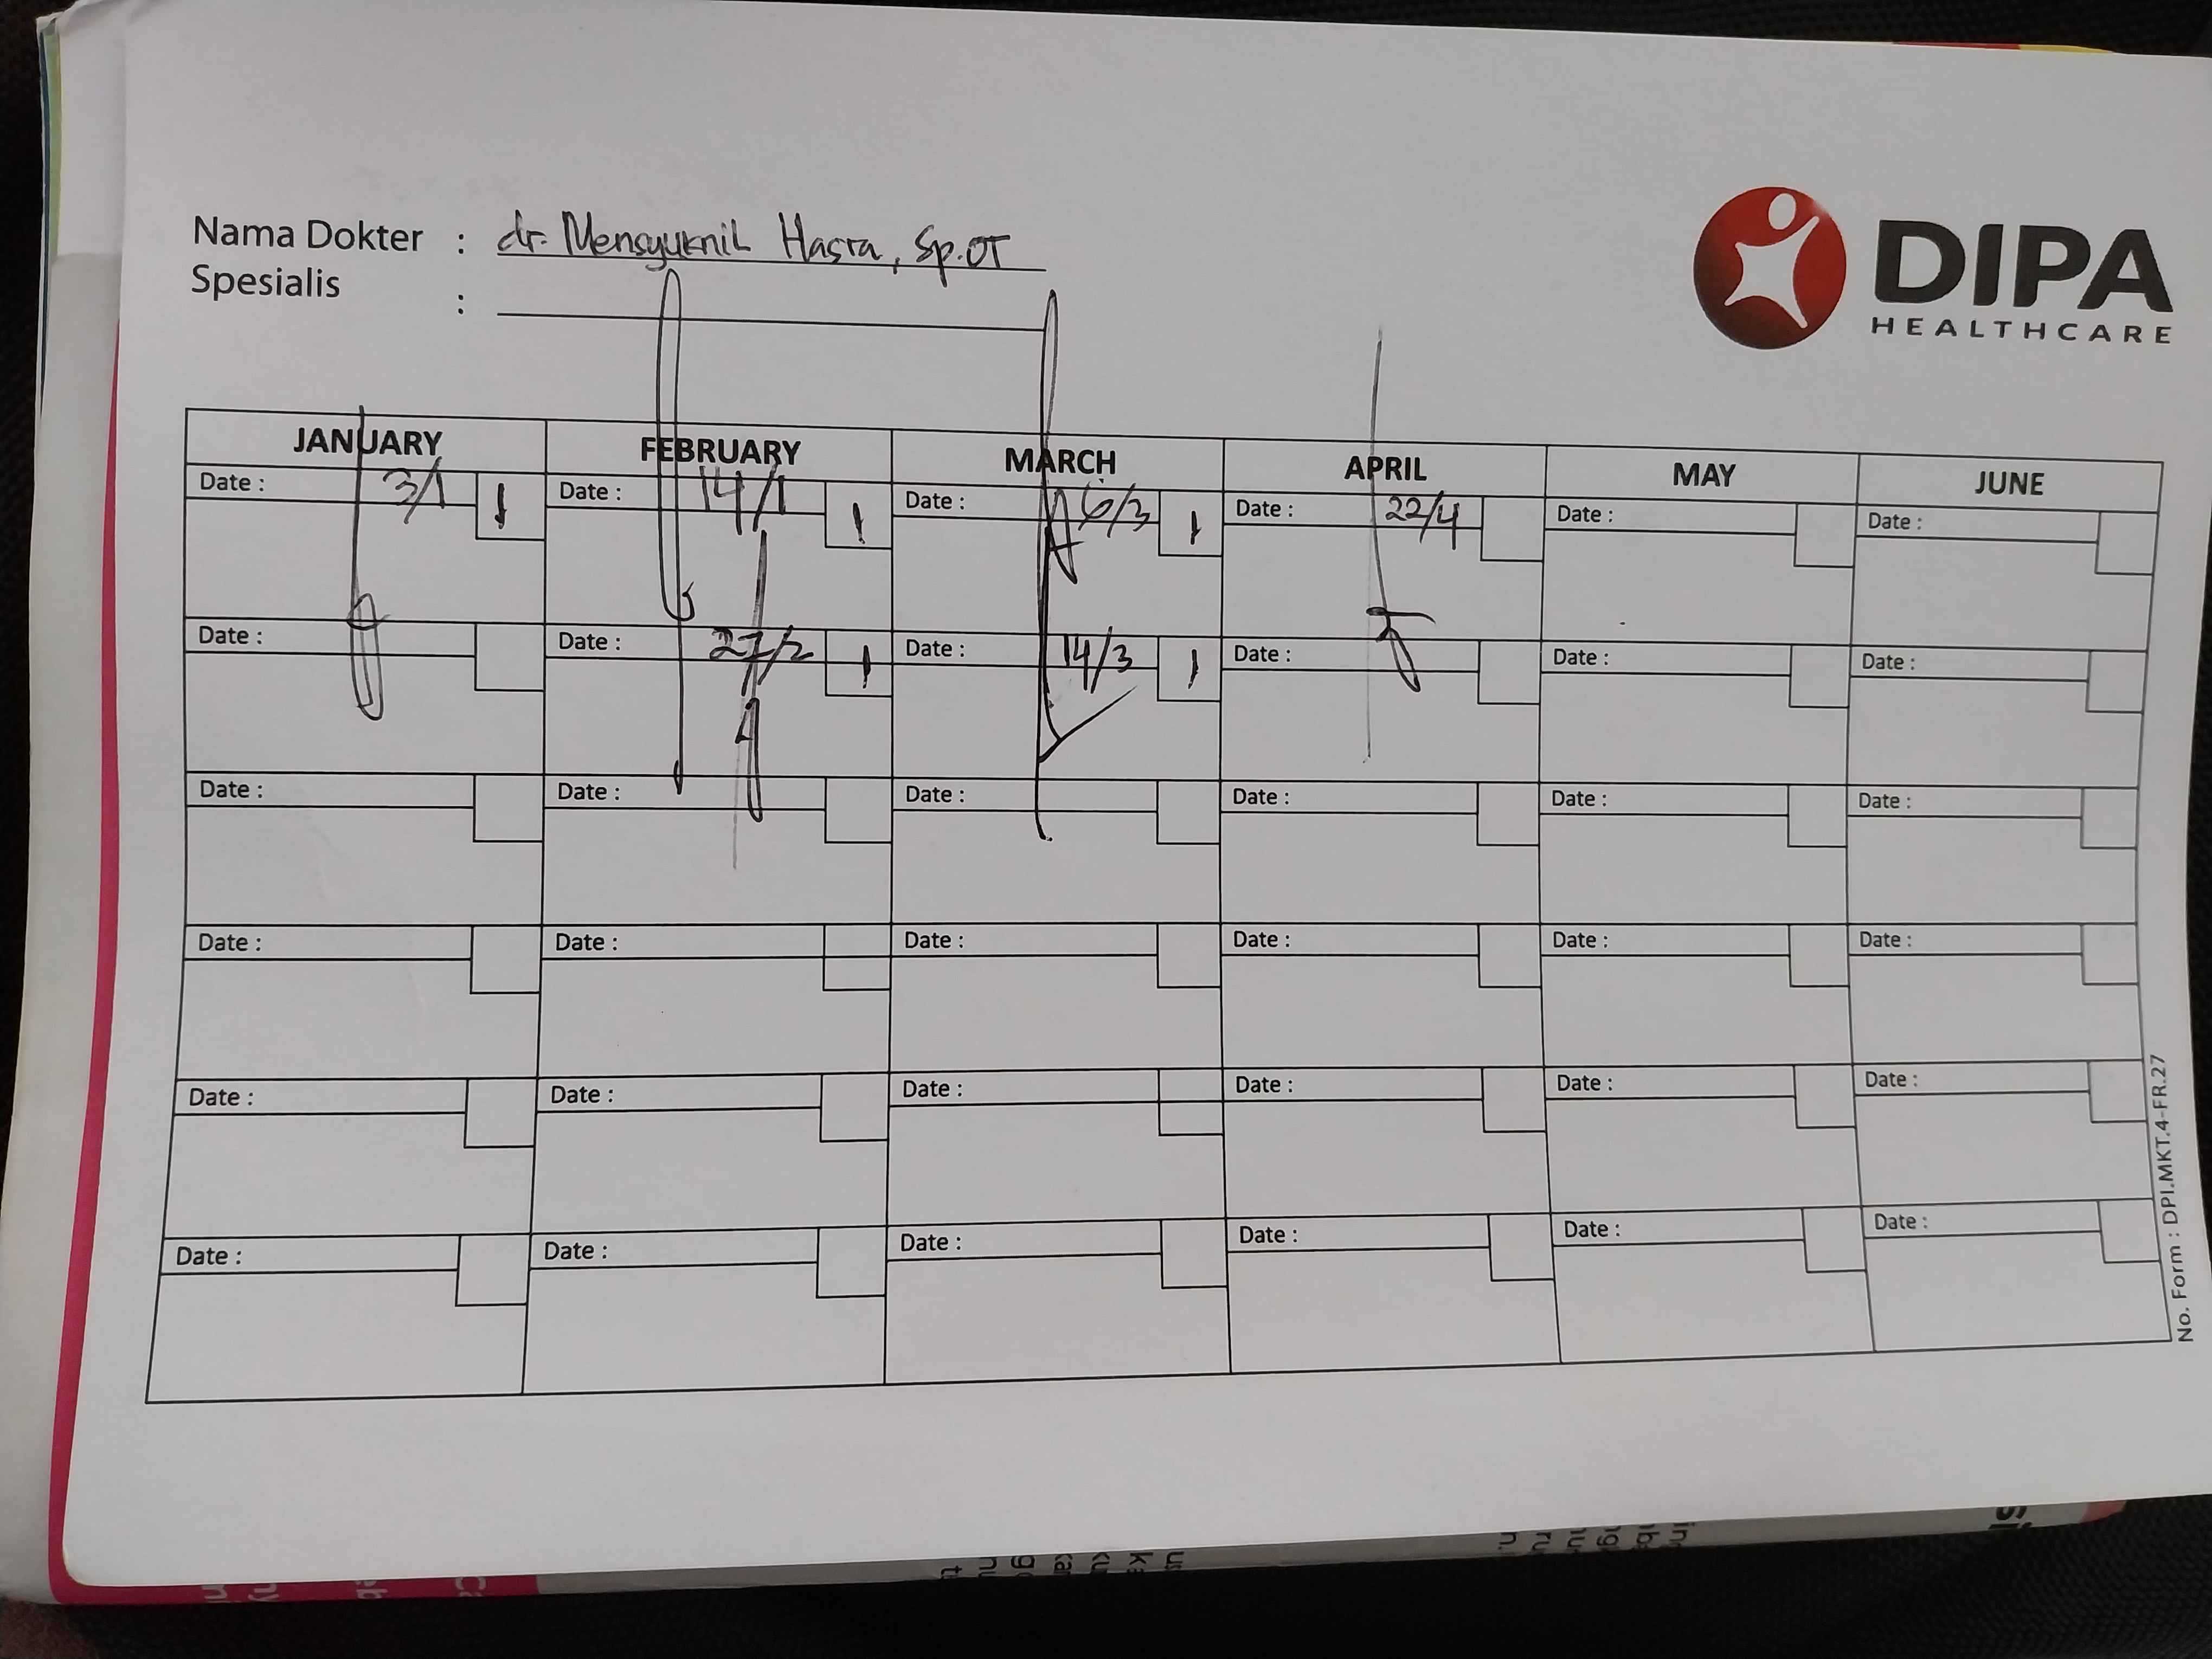 Nama Dokter : dr. Mensyurnil Hasra, Sp.OT
Spesialis :
DIPA
HEALTHCARE
JANUARY FEBRUARY MARCH APRIL MAY JUNE
Date : 3/1 1 Date : 14/1 1 Date : 6/3 1 Date : 22/4 Date : Date :
Date : Date : 27/2 1 Date : 14/3 1 Date : Date : Date :
Date : Date : Date : Date : Date : Date :
Date : Date : Date : Date : Date : Date :
Date : Date : Date : Date : Date : Date :
Date : Date : Date : Date : Date : Date :
No. Form : DPI.MKT.4-FR.27